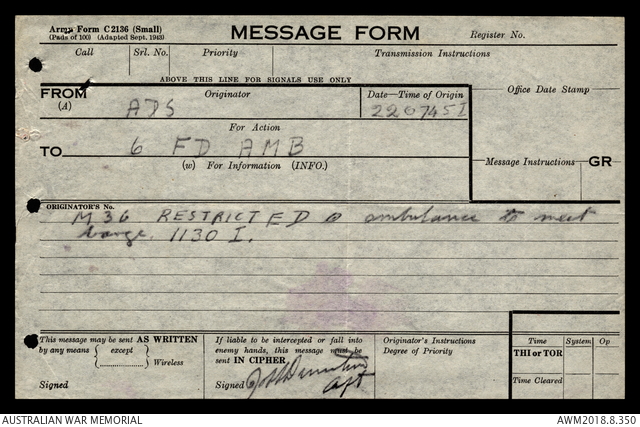 Army Form C2136 (Small)
(Pads of 100) (Adapted Sept. 1943)
MESSAGE FORM
Register No.
Call Srl. No. Priority Transmission Instructions
ABOVE THIS LINE FOR SIGNALS USE ONLY
FROM
(A)
Originator
ADS
Date—Time of Origin
220745I
Office Date Stamp
For Action
TO
6 FD AMB
(w) For Information (INFO.)
Message Instructions GR
ORIGINATOR'S No.
M36 RESTRICTED ambulance to meet
barge. 1130 I.
This message may be sent AS WRITTEN
by any means except
Wireless
Signed
If liable to be intercepted or fall into
enemy hands, this message must be
sent IN CIPHER
Signed
Capt
Originator's Instructions
Degree of Priority
Time System Op
THI or TOR
Time Cleared
AUSTRALIAN WAR MEMORIAL
AWM2018.8.350